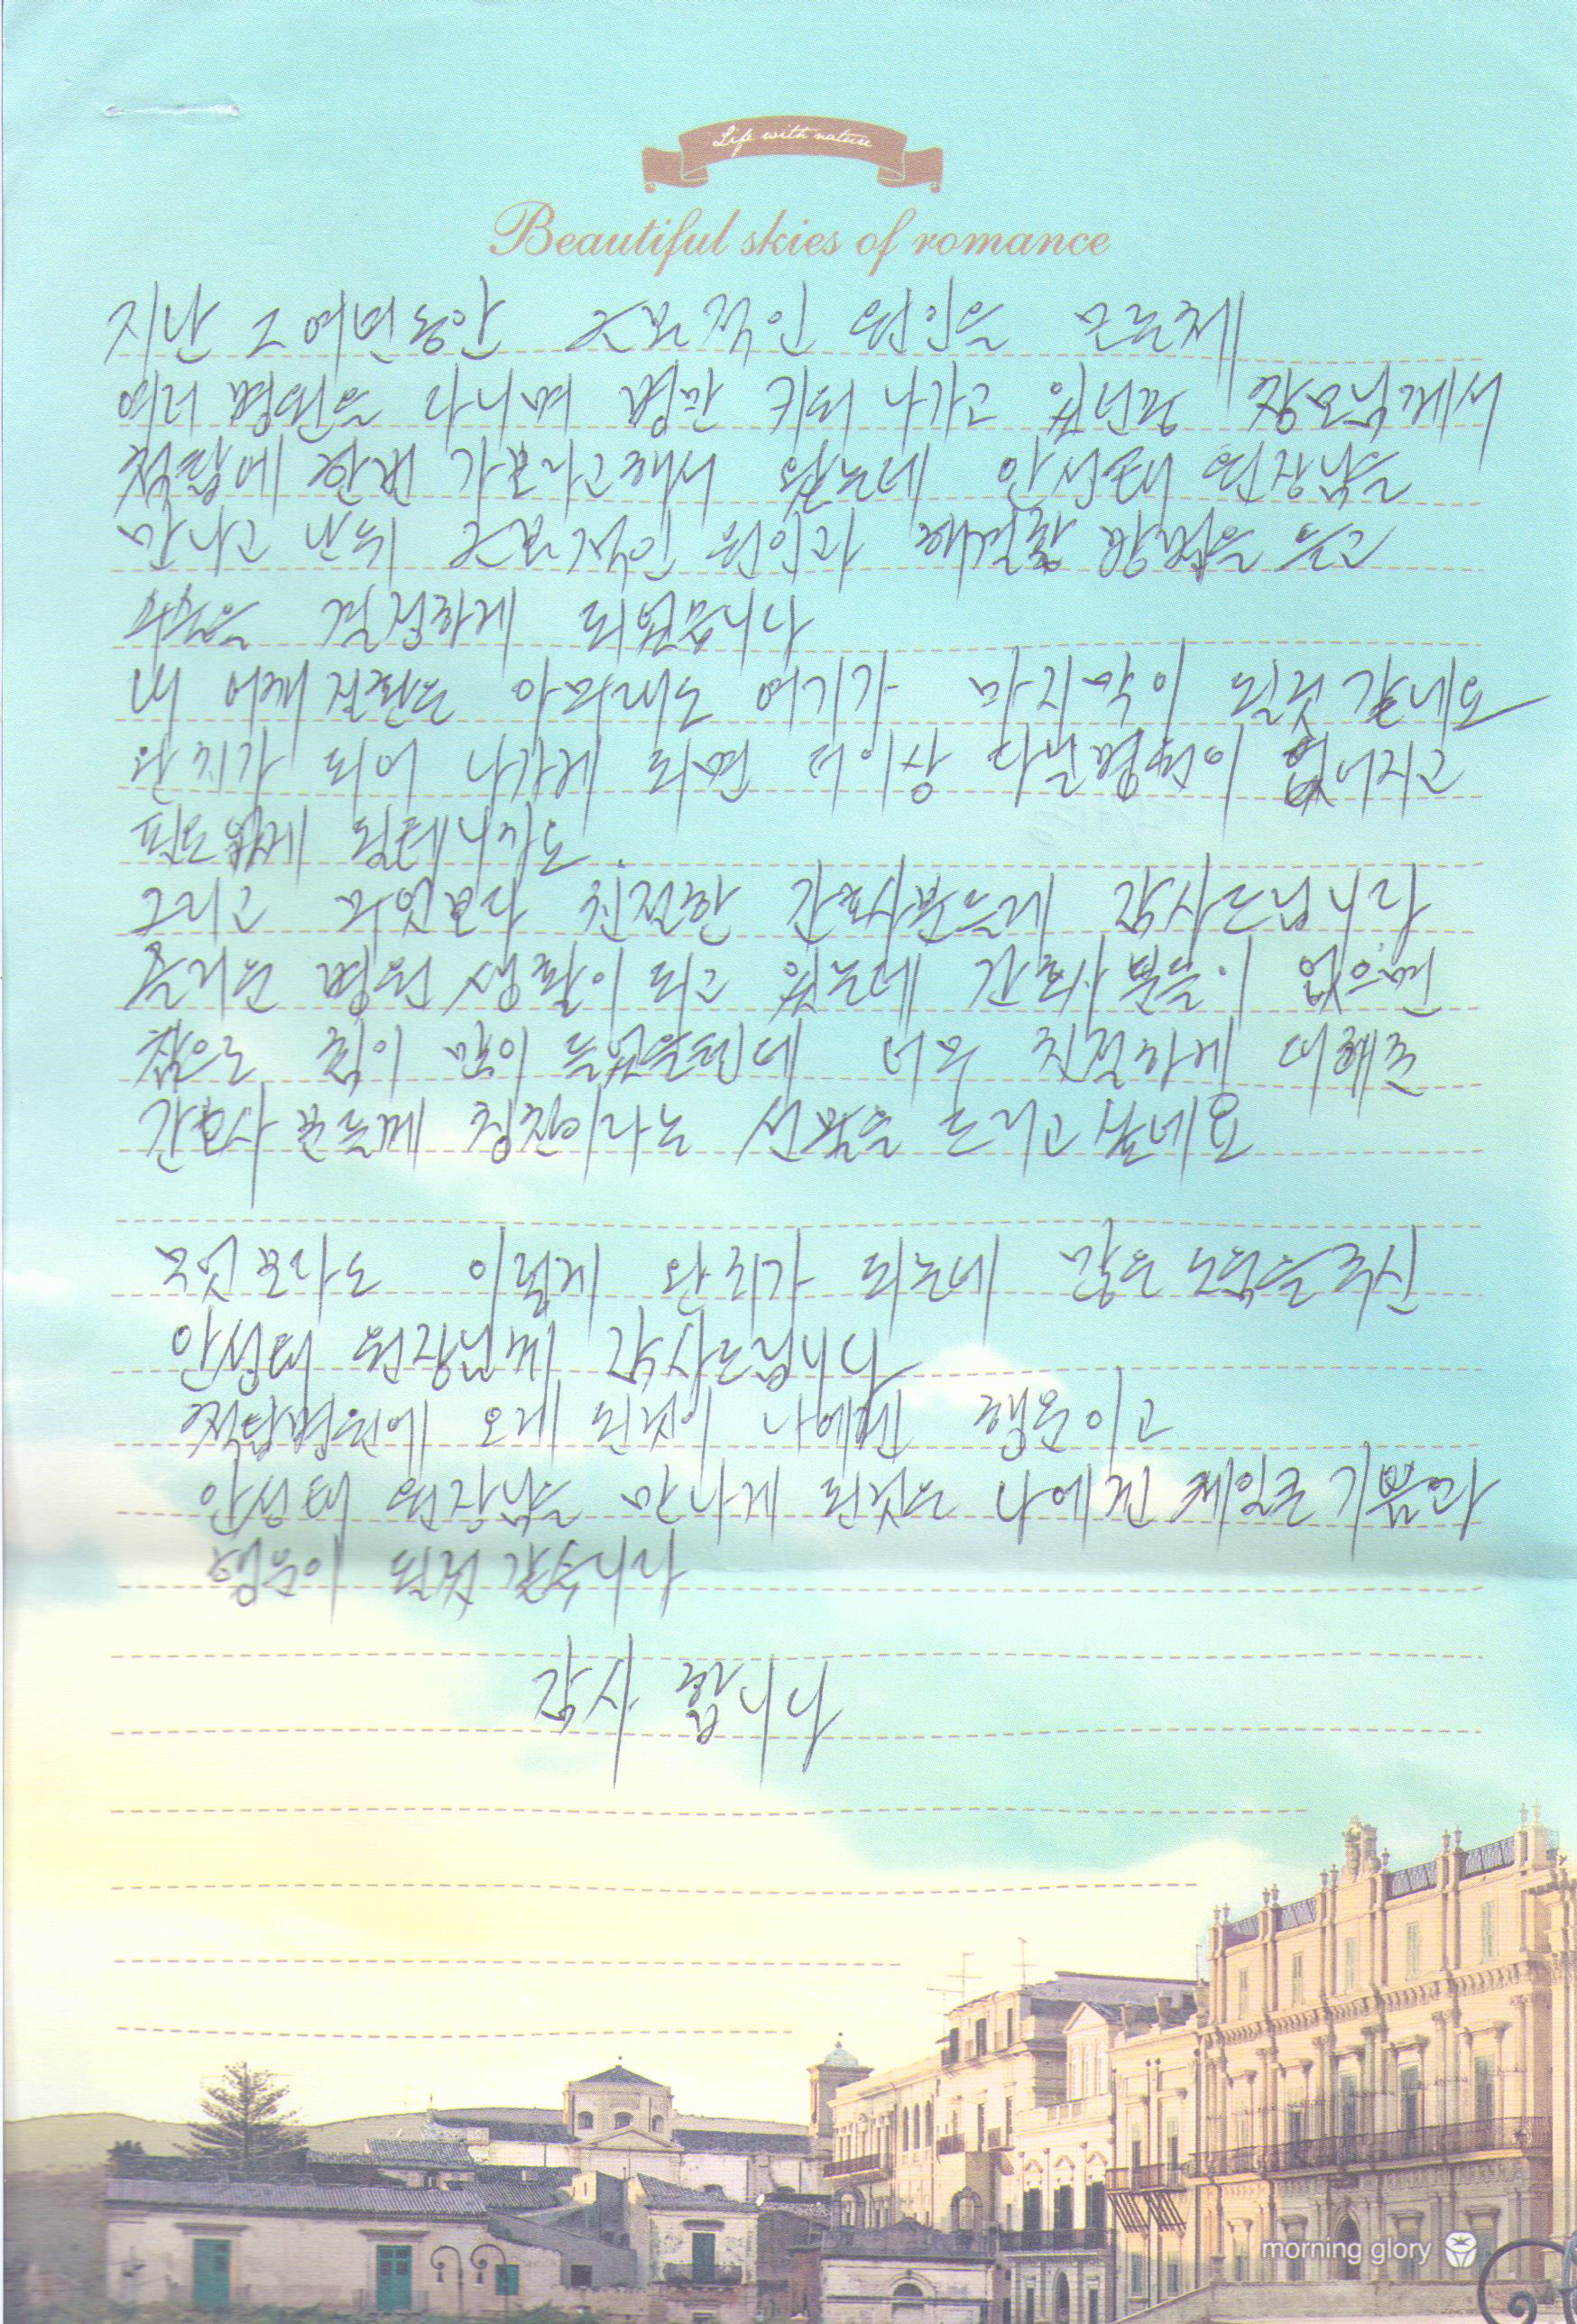 Life with nature
Beautiful skies of romance
지난 2여년동안 근본적인 원인을 모른체
여러 병원을 다니며 병만 키워 나가고 있던 장모님께서
척탑에 한번 가보라고해서 왔는데 안성태 원장님을
만나고 난뒤 근본적인 원인과 해결할 방법을 듣고
수술을 결정하게 되었습니다
내 어깨 질환은 아마래도 여기가 마지막이 될것 같네요
완치가 되어 나가게 되면 더이상 다닐병원이 없어지고
필요없게 될테니까요.
그리고 무엇보다 친절한 간호사분들께 감사드립니다
병원 생활이 되고 있는데 간호사 분들이 없으면
참으로 힘이 많이 들었을텐데 너무 친절하게 대해준
간호사 분들께 칭찬이라는 선물을 드리고 싶네요
무엇보다도 이렇게 완치가 되는데 많은 도움을주신
안성태 원장님께 감사드립니다
척탑병원에 오게 된것이 나에겐 행운이고
안성태 원장님을 만나게 된것은 나에겐 제일큰 기쁨과
행운이 된것 같습니다
감사 합니다
morning glory